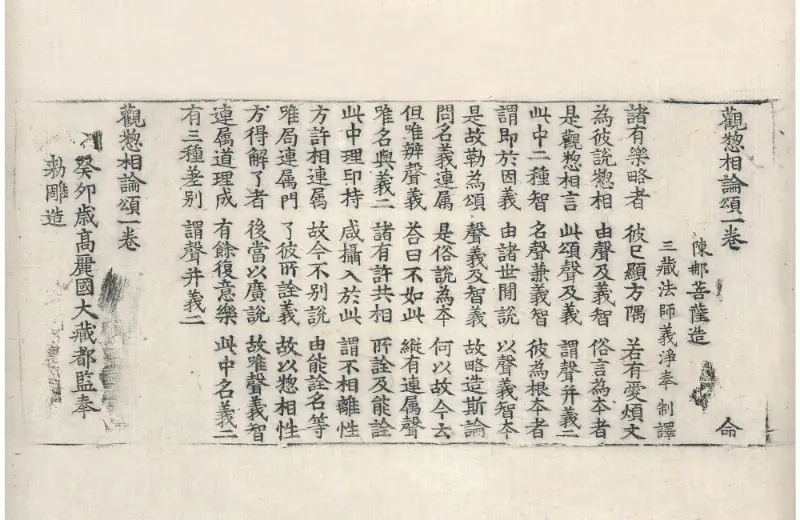 觀惣相論頌一卷 命
陳那菩薩造
三藏法師義淨奉 制譯
諸有樂略者 彼已顯方隅 若有愛煩文
為彼說惣相 由聲及義智 俗言為夲者
是觀惣相言 此頌聲及義 謂聲并義二
此中二種智 名聲兼義智 彼為根夲者
謂即於因義 由諸世間說 以聲義智夲
是故勒為頌 聲義及智義 故略造斯論
問名義連属 是俗說為夲 何以故今云
但唯辨聲義 荅曰不如此 縱有連属聲
唯名與義二 諸有許共相 所詮及能詮
此中理印持 咸攝入於此 謂不相離性
方許相連属 故今不別說 由能詮名等
唯局連属門 了彼所詮義 故以惣相性
方得解了者 後當以廣說 故唯聲義智
連属道理成 有餘復意樂 此中名義二
有三種差別 謂聲并義二
觀惣相論頌一卷
癸卯歲高麗國大藏都監奉
勑雕造